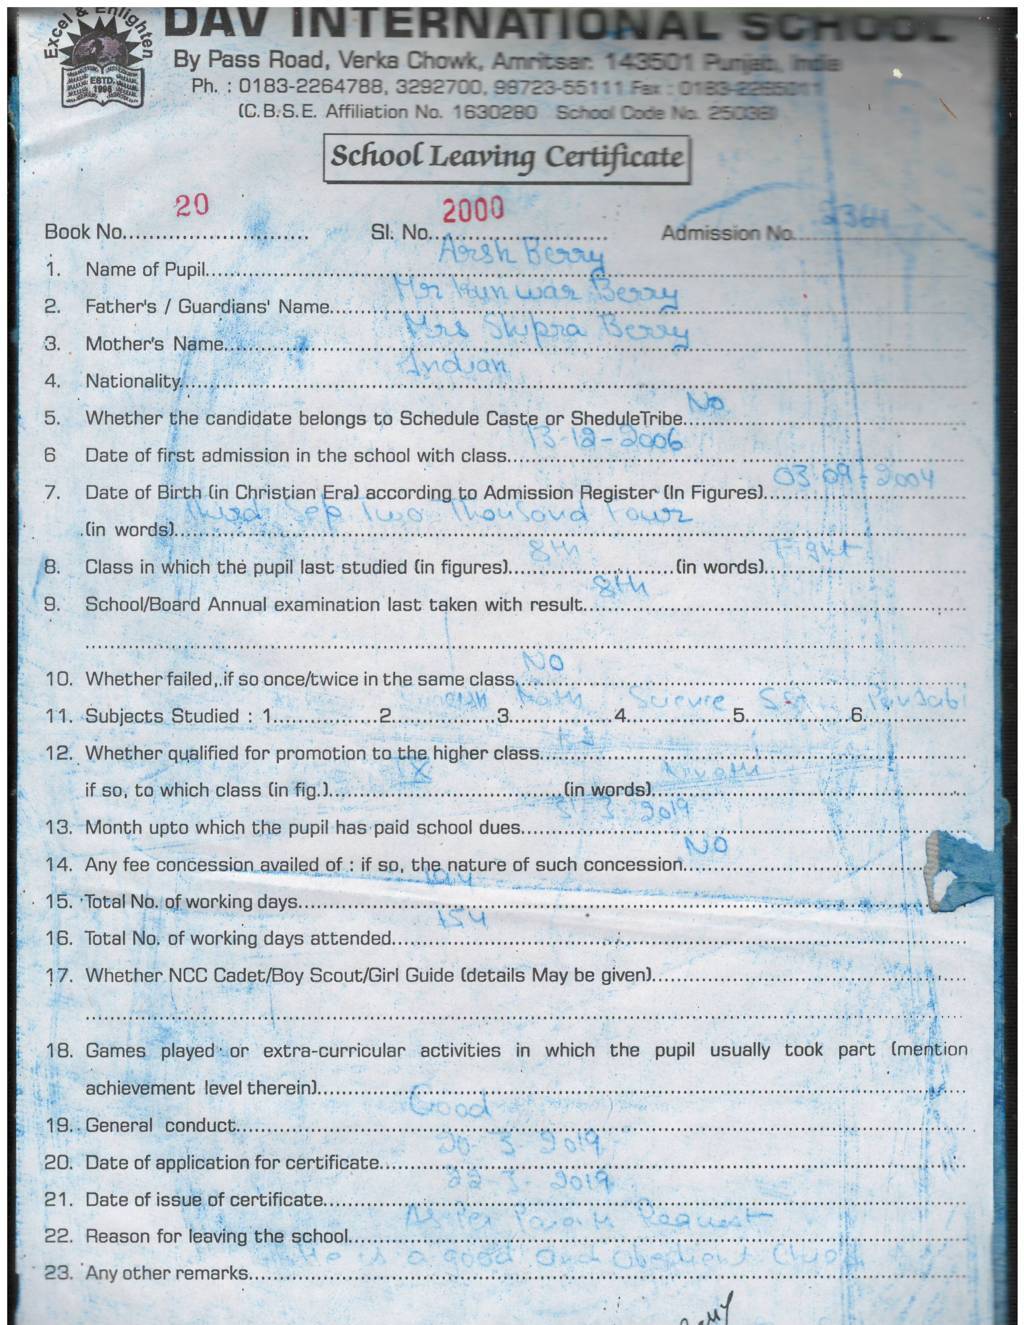 Excel & Enlighten
ESTD. 1996
DAV INTERNATIONAL SCHOOL
By Pass Road, Verka Chowk, Amritsar. 143501 Punjab, India
Ph. : 0183-2264788, 3292700, 98723-55111 Fax : 0183-2265011
(C.B.S.E. Affiliation No. 1630280 School Code No. 25038)
School Leaving Certificate
Book No. 20 Sl. No. 2000 Admission No.
1. Name of Pupil Arsh Berry
2. Father's / Guardians' Name Mr Kunwar Berry
3. Mother's Name Mrs Shipra Berry
4. Nationality Indian
5. Whether the candidate belongs to Schedule Caste or SheduleTribe No
6 Date of first admission in the school with class 13-12-2006
7. Date of Birth (in Christian Era) according to Admission Register (In Figures) 03-09-2004
(in words) Third Sep Two Thousand Four
8. Class in which the pupil last studied (in figures) 8th (in words) Eight
9. School/Board Annual examination last taken with result 8th
10. Whether failed, if so once/twice in the same class No
11. Subjects Studied : 1. 2. 3. Math 4. Science 5. 6. Punjabi
12. Whether qualified for promotion to the higher class
if so, to which class (in fig.) IX (in words)
13. Month upto which the pupil has paid school dues 31-3-2019
14. Any fee concession availed of : if so, the nature of such concession No
15. Total No. of working days
16. Total No. of working days attended 154
17. Whether NCC Cadet/Boy Scout/Girl Guide (details May be given)
18. Games played or extra-curricular activities in which the pupil usually took part (mention
achievement level therein)
19. General conduct Good
20. Date of application for certificate 20-3-2019
21. Date of issue of certificate 22-3-2019
22. Reason for leaving the school As Per Parents Request
23. Any other remarks He is a good and obedient